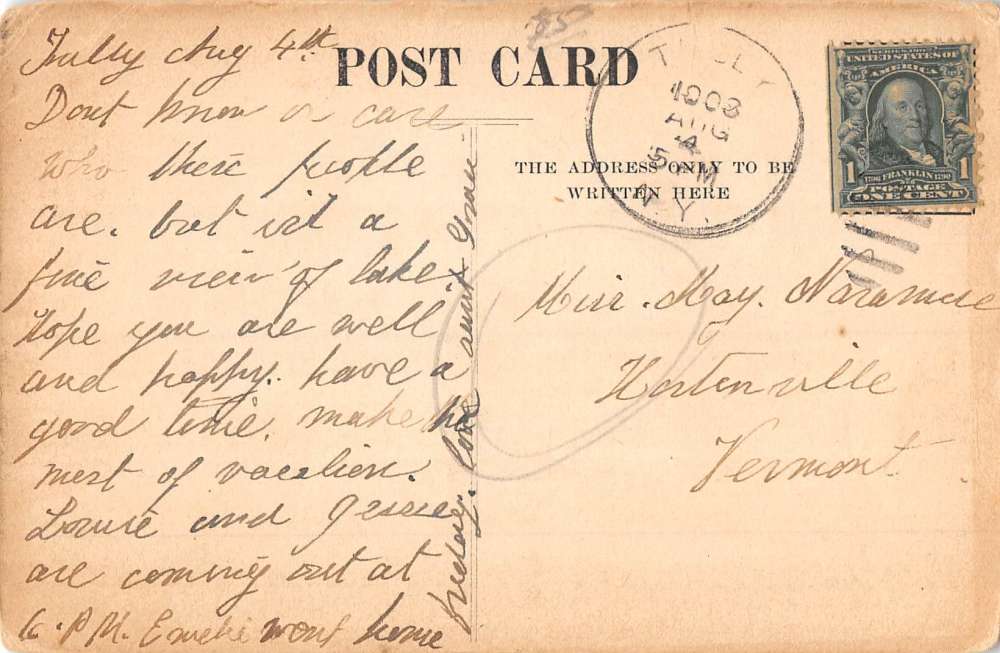 Tully Aug 4th
Dont know or care
who these people
are. but it's a
fine view of lake.
Hope you are well
and happy. have a
good time. make the
most of vacation.
Louise and
are coming out at
6. P.M. went home
friday. love aunt Grace
POST CARD
THE ADDRESS ONLY TO BE
WRITTEN HERE
25
TULLY
1908
AUG
4
5 PM
N.Y.
SERIES 1902
UNITED STATES OF
AMERICA
1 1
1706 FRANKLIN 1790
POSTAGE
ONE CENT
Miss. May. Naramore
Hortonville
Vermont